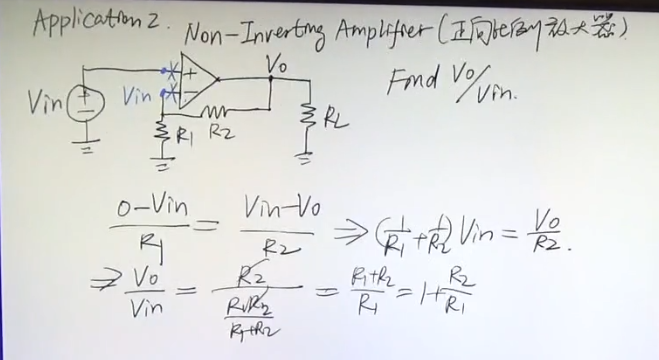 Application 2. Non-Inverting Amplifier (正向比例放大器)
Vo
Find Vo/Vin.
Vin + − Vin + − R1 R2 RL
(0-Vin)/R1 = (Vin-Vo)/R2 ⇒ (1/R1 + 1/R2) Vin = Vo/R2.
⇒ Vo/Vin = R2/(R1R2/(R1+R2)) = (R1+R2)/R1 = 1+R2/R1